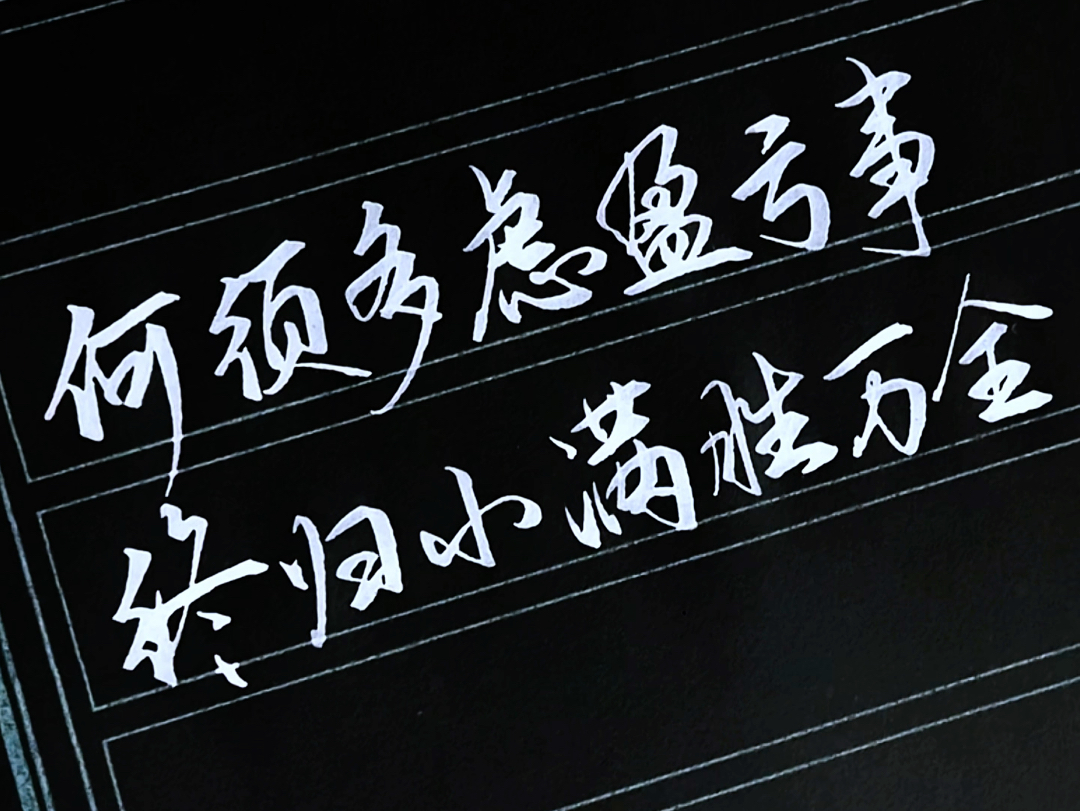 何须多虑盈亏事
终归小满胜万全